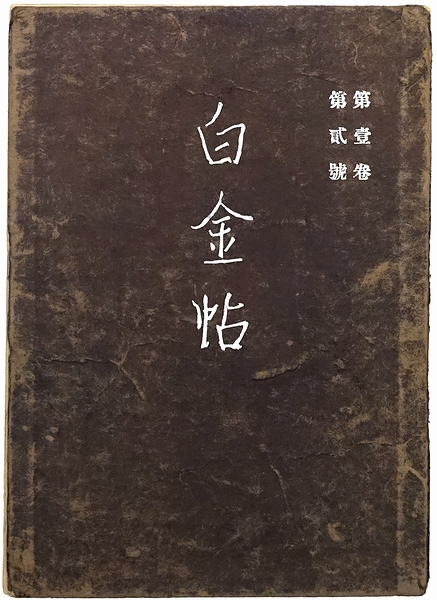 第壹卷
第貳號
白金帖